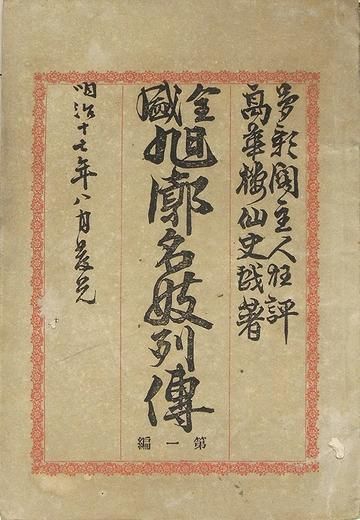 夢彩閣主人狂評
高華楼仙史戯著
全盛
旭廓名妓列傳
第一編
明治十七年八月發兌